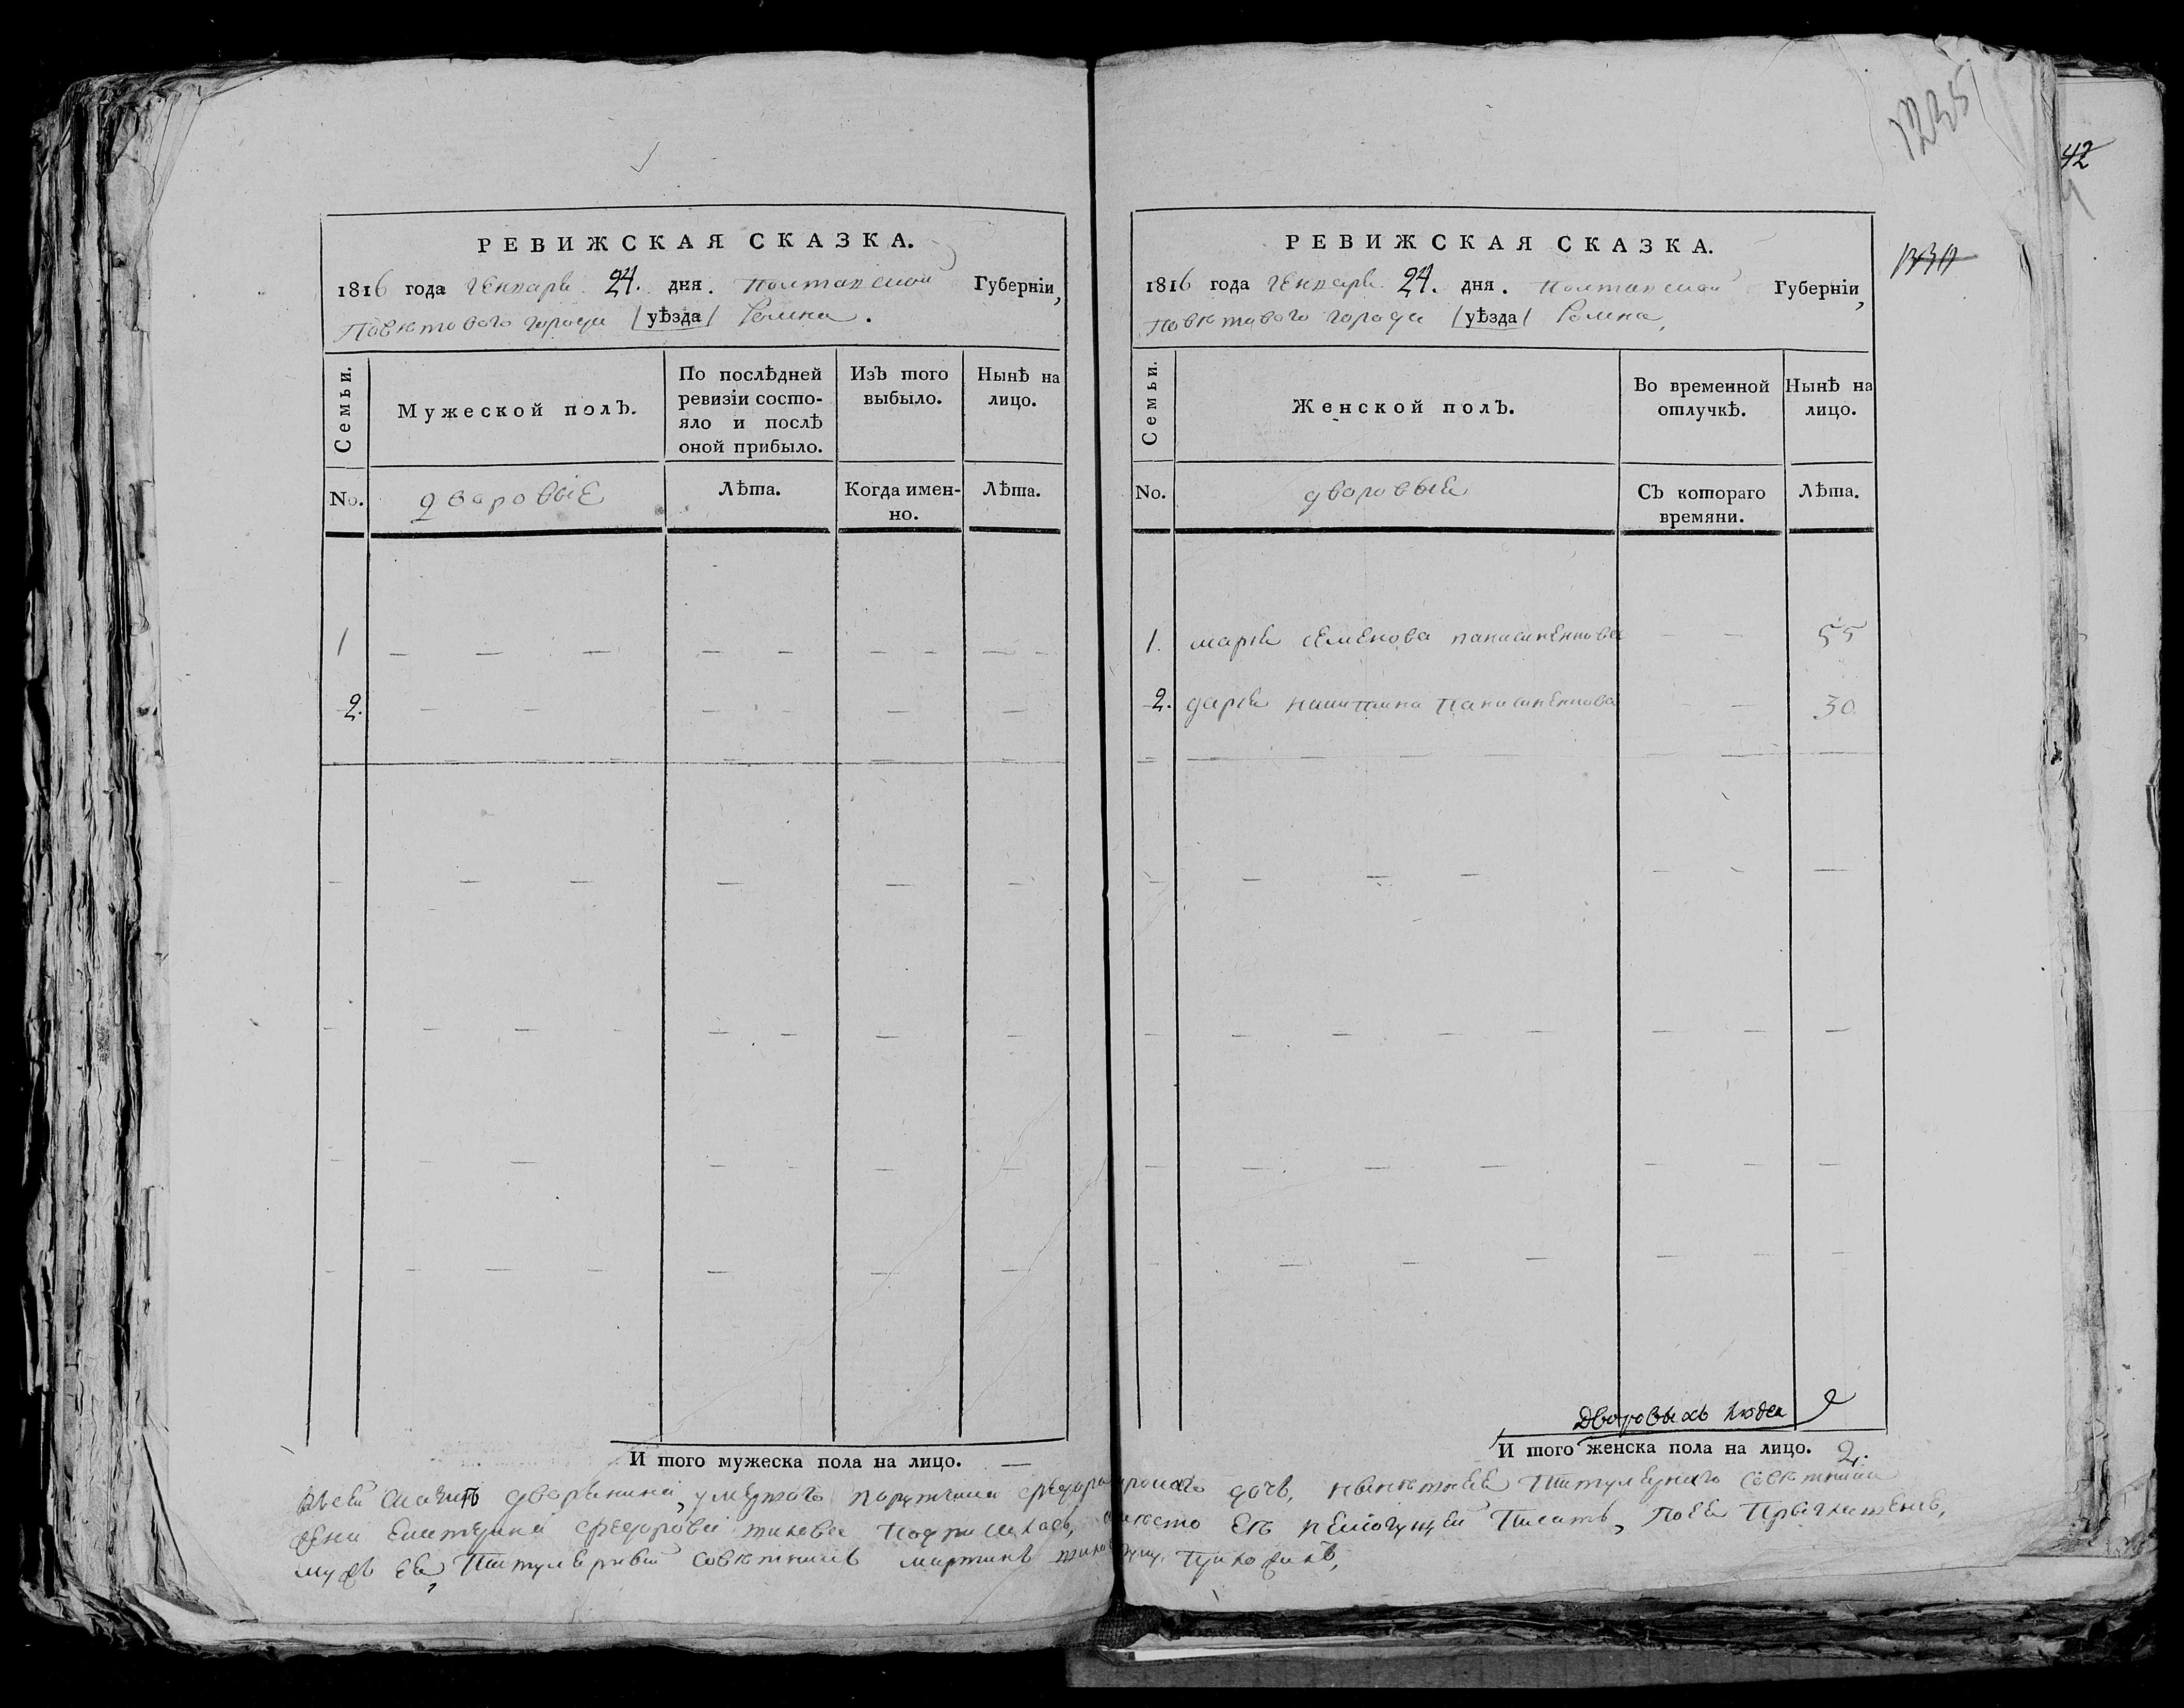 РЕВИЖСКАЯ СКАЗКА.
1816 года Генваря 24. дня. Полтавской Губерніи,
Повѣтового города /уѣзда/ Ромна.
Семьи.
Мужеской полъ.
По послѣдней ревизіи состо-
яло и послѣ
оной прибыло.
Изъ того
выбыло.
Нынѣ на
лицо.
No.
дворовые
Лѣта.
Когда имен-
но.
Лѣта.
1
2.
И того мужеска пола на лицо. —
1235
42
РЕВИЖСКАЯ СКАЗКА.
1816 года Генваря 24. дня. Полтавской Губерніи,
Повѣтового города /уѣзда/ Ромна,
Семьи.
Женской полъ.
Во временной
отлучкѣ.
Нынѣ на
лицо.
No.
дворовые
Съ котораго
времяни.
Лѣта.
1. марья семенова 55
2. дарья 30
Дворовыхъ людей 2
И того женска пола на лицо. 2.
дворянина, умершого порутчика дочь, нынѣшнее титулярного совѣтника
жена федорова вместо ее немогущей писать, по ее
мужъ ее, титулярный совѣтникъ мартинъ приложилъ,